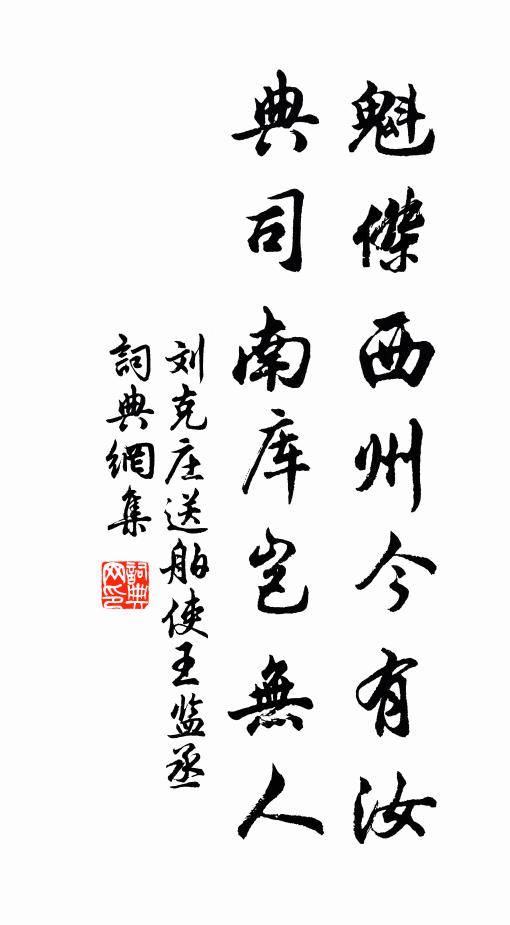 魁傑西州今有汝
典司南库岂無人
刘克庄送舶使王监丞
詞典網集
詞典网印